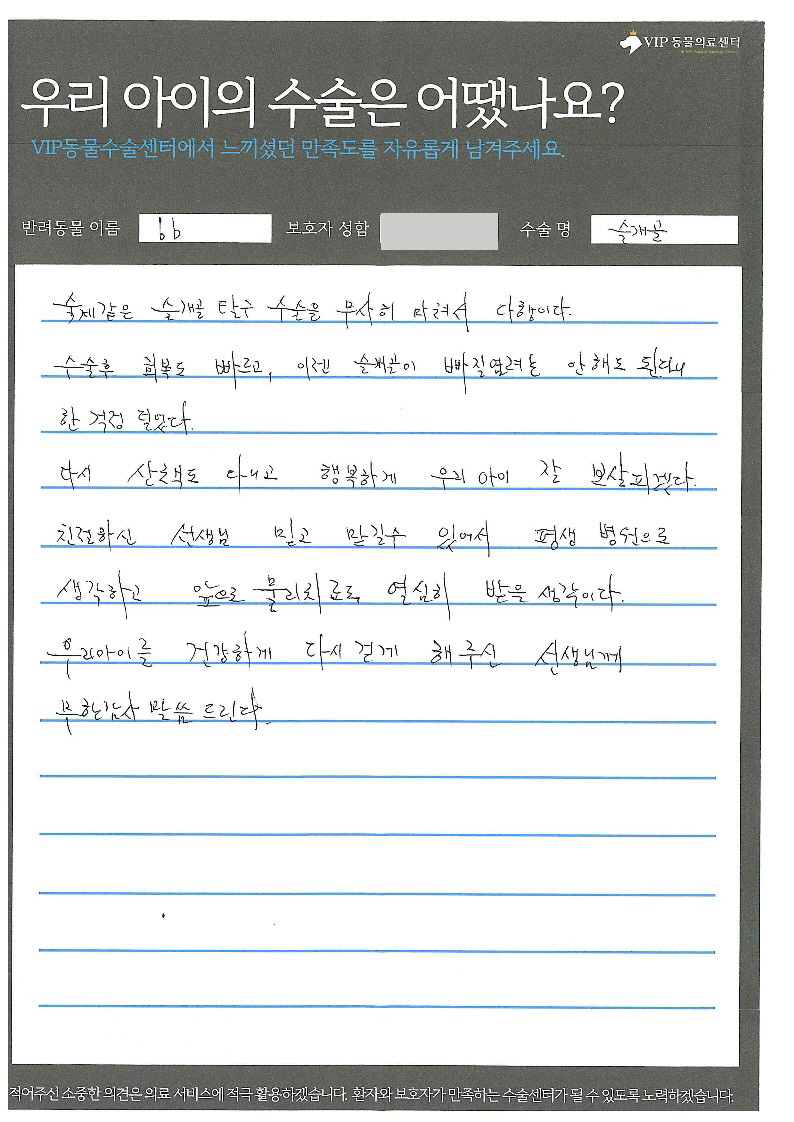 VIP 동물의료센터
우리 아이의 수술은 어땠나요?
VIP동물수술센터에서 느끼셨던 만족도를 자유롭게 남겨주세요.
반려동물 이름 bb 보호자 성함 수술 명 슬개골
숙제같은 슬개골 탈구 수술을 무사히 마쳐서 다행이다.
수술후 회복도 빠르고, 이젠 슬개골이 빠질염려는 안해도 된다니
한 걱정 덜었다.
다시 산책도 다니고 행복하게 우리 아이 잘 보살피겠다.
친절하신 선생님 믿고 맡길수 있어서 평생 병원으로
생각하고 앞으로 물리치료도 열심히 받을 생각이다.
우리아이를 건강하게 다시 걷게 해 주신 선생님께
무한감사 말씀 드린다.
적어주신 소중한 의견은 의료 서비스에 적극 활용하겠습니다. 환자와 보호자가 만족하는 수술센터가 될 수 있도록 노력하겠습니다.